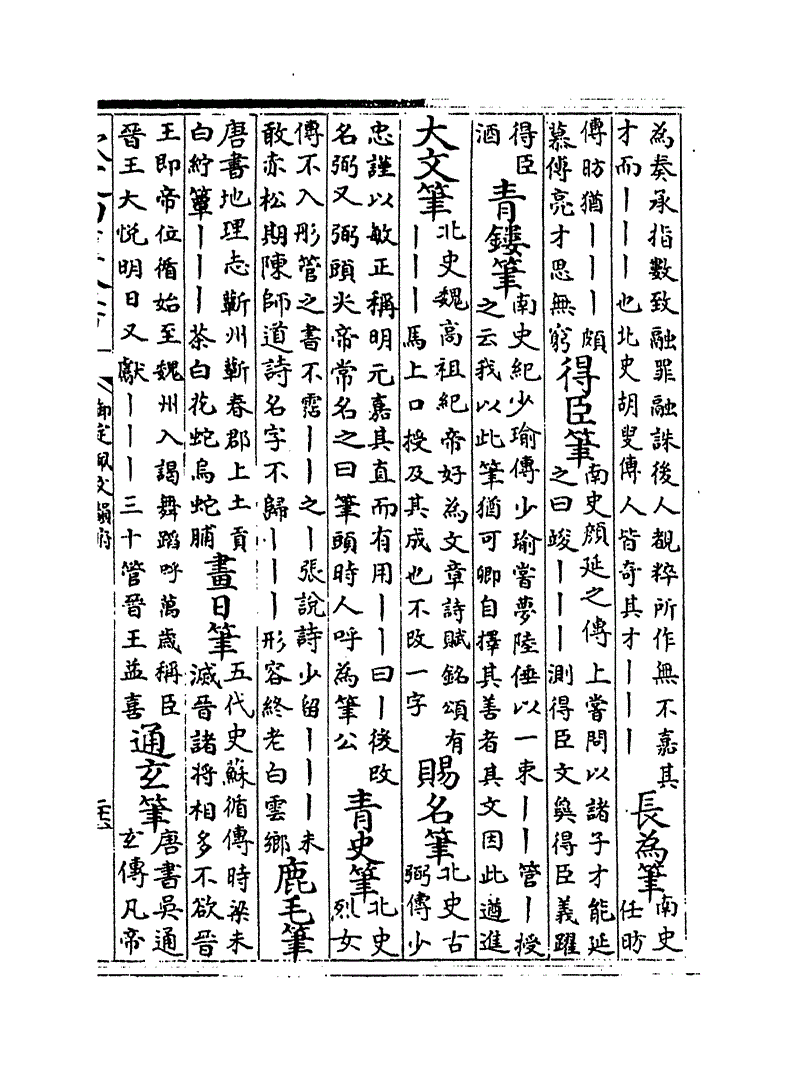 為奏承指數致融罪融誅後人覩粹所作無不嘉其
才而丨丨丨也北史胡叟傳人皆奇其才丨丨丨
長為筆
南史
任昉
傳昉猶丨丨丨頗
慕傳亮才思無窮
得臣筆
南史顔延之傳上嘗問以諸子才能延
之曰竣丨丨丨測得臣文㚟得臣義躍
得臣
酒
青鏤筆
南史紀少瑜傳少瑜嘗夢陸倕以一束丨丨管丨授
之云我以此筆猶可卿自擇其善者其文因此遒進
大文筆
北史魏高祖紀帝好為文章詩賦銘頌有
丨丨丨馬上口授及其成也不改一字
賜名筆
北史古
弼傳少
忠謹以敏正稱明元嘉其直而有用丨丨曰丨後改
名弼又弼頭尖帝常名之曰筆頭時人呼為筆公
青史筆
北史
烈女
傳不入彤管之書不霑丨丨之丨張說詩少留丨丨丨未
敢赤松期陳師道詩名字不歸丨丨丨形容終老白雲鄉
鹿毛筆
唐書地理志蘄州蘄春郡上土貢
白紵簟丨丨丨茶白花蛇烏蛇脯
畫日筆
五代史蘇循傳時梁未
滅晉諸將相多不欲晉
王即帝位循始至魏州入謁舞蹈呼萬歲稱臣
晉王大悅明日又獻丨丨丨三十管晉王益喜
通玄筆
唐書吳通
玄傳凡帝
御定佩文韻府